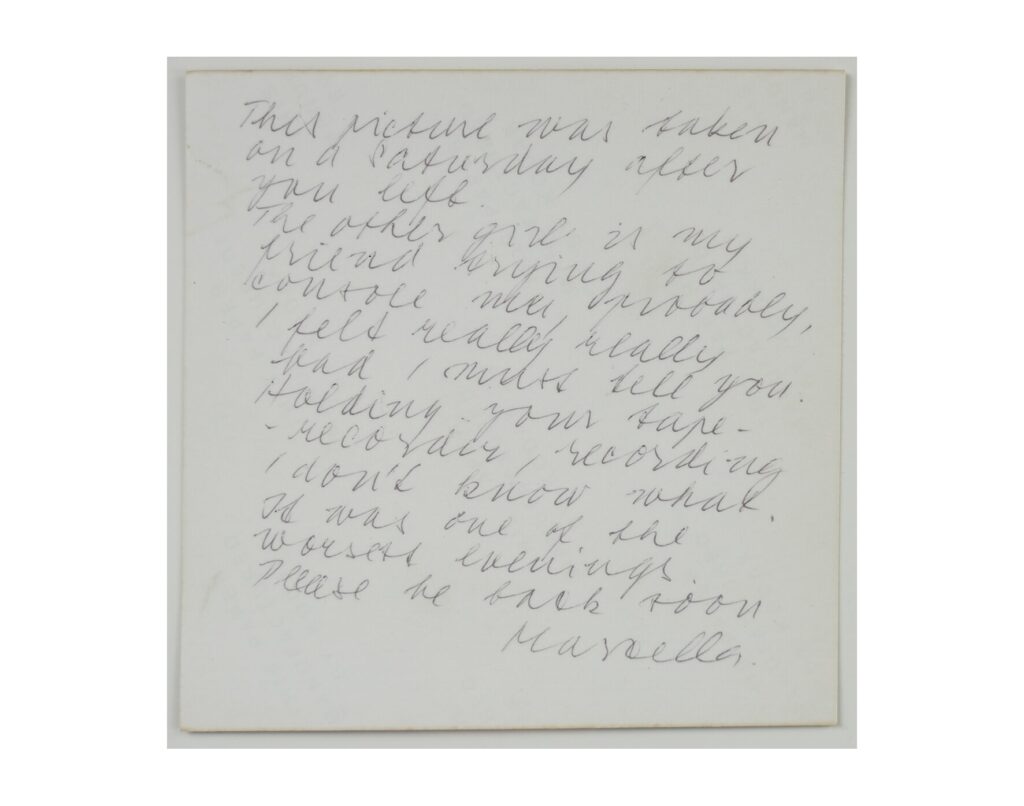 This picture was taken
on a Saturday after
you left.
The other girl is my
friend trying to
console me, probably,
I felt really really
bad I must tell you.
Holding your tape-
-recorder, recording
I don't know what.
It was one of the
worsets evenings.
Please be back soon
Marcella.